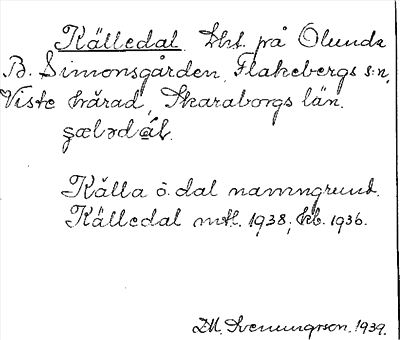 Källedal. tht. på Olunda
B. Simonsgården, Flakebergs s:n,
Viste härad, Skaraborgs län.
Källa o. dal namngrund.
Källedal mtl. 1938; kb. 1936.
M. Svenungsson. 1939.